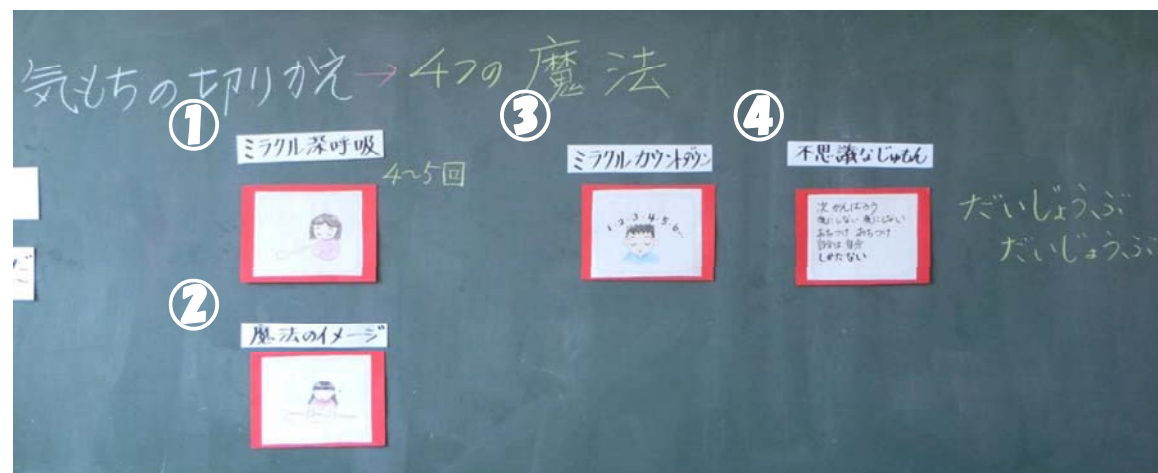 気もちの切りかえ→4つの魔法
①
ミラクル深呼吸
4~5回
②
魔法のイメージ
③
ミラクルカウントダウン
1・2・3・4・5・6…
④
不思議なじゅもん
次がんばろう
気にしない 気にしない
おちつけ おちつけ
自分は自分
しかたない
だいじょうぶ
だいじょうぶ
だ